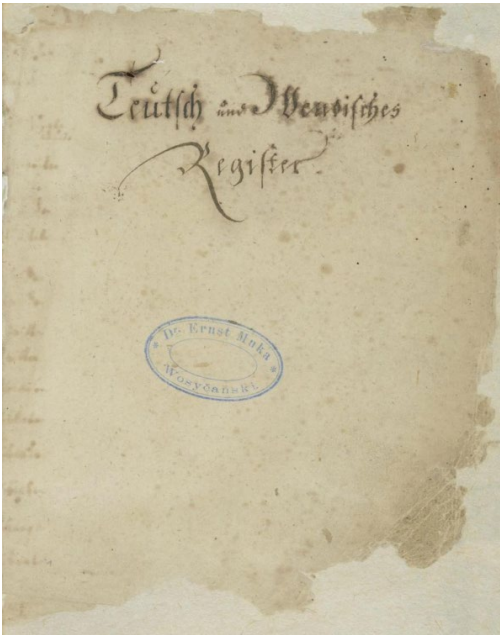 Teütsch und Wendisches
Register.
Dr. Ernst Muka
Wosyčański